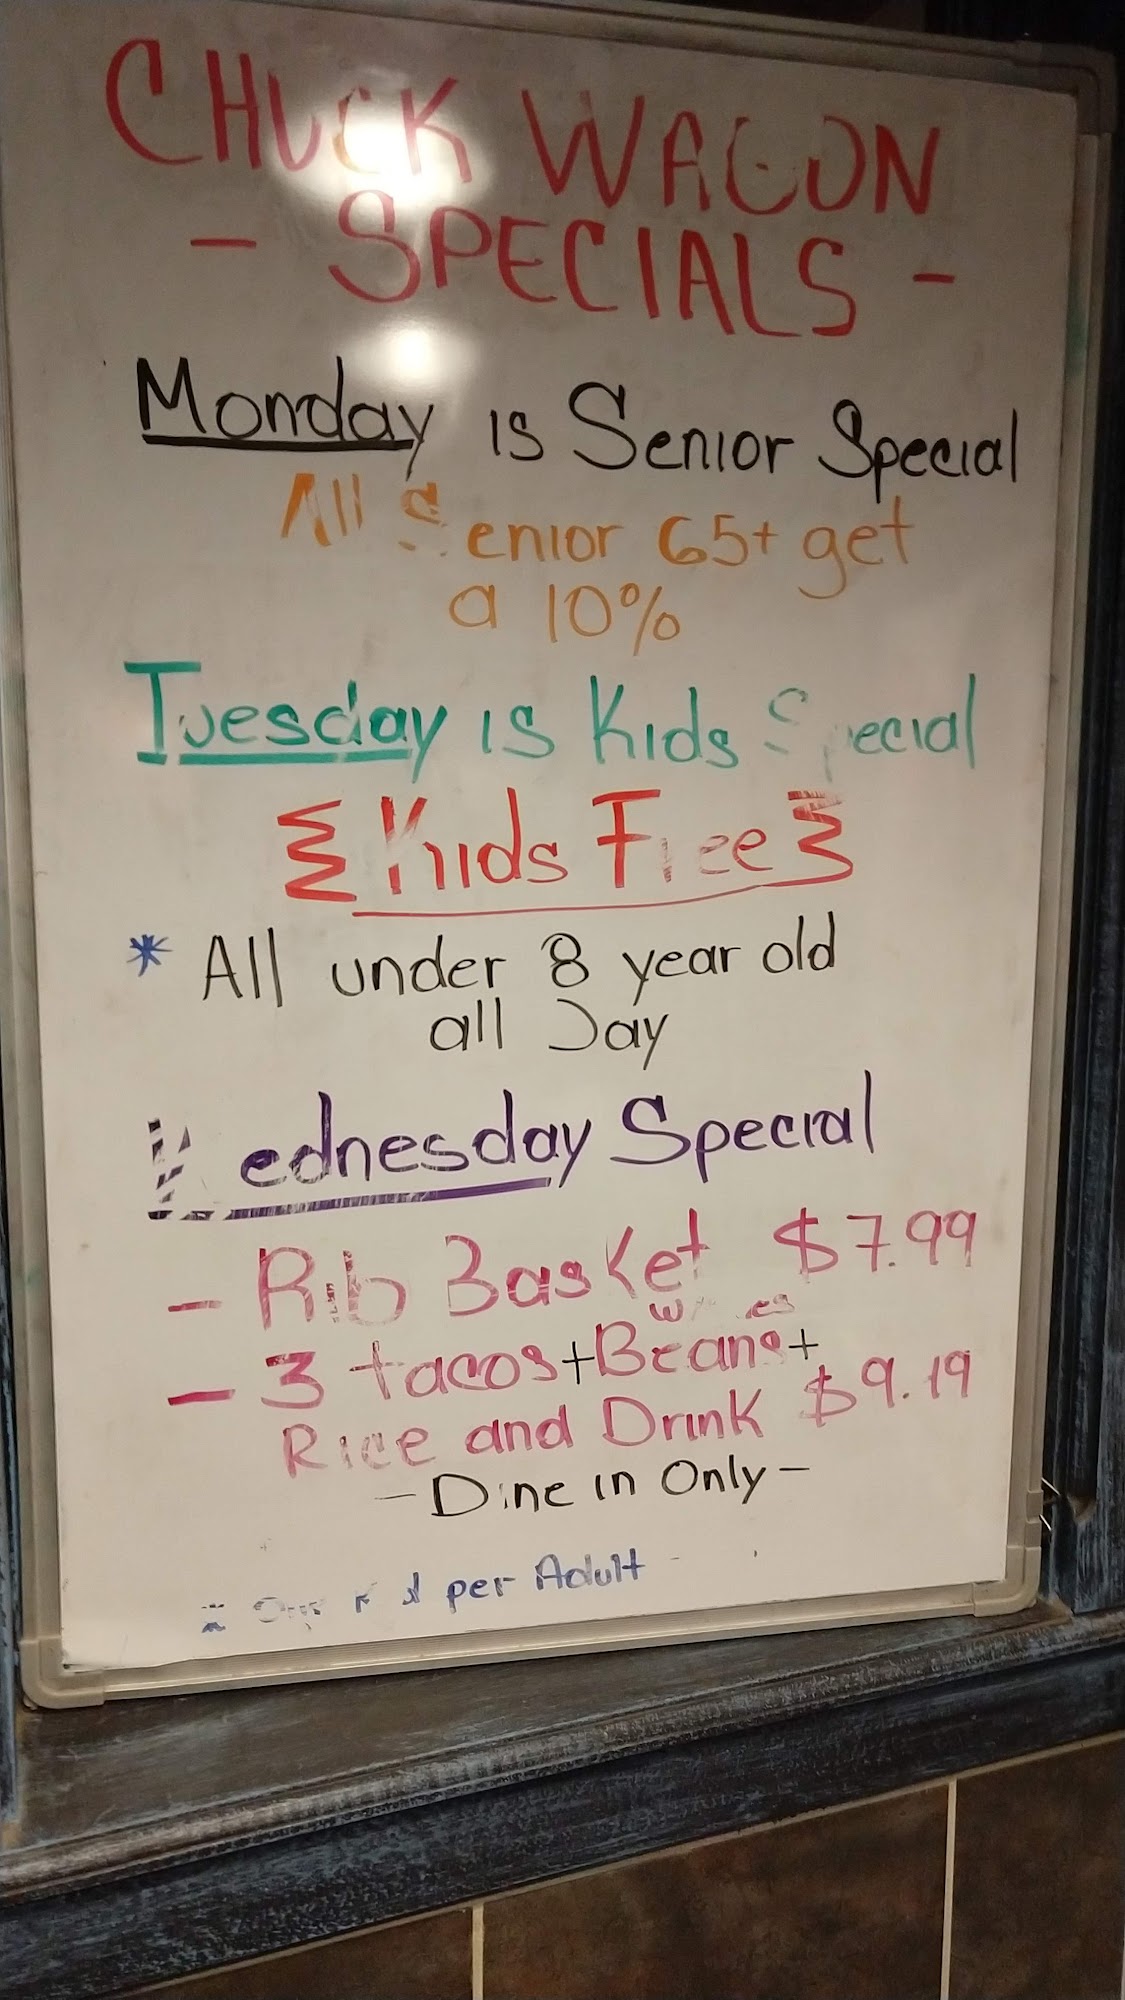 CHUCK WAGON
- SPECIALS -
Monday is Senior Special
All Senior 65+ get
a 10%
Tuesday is Kids Special
Kids Free
* All under 8 year old
all Day
Wednesday Special
- Rib Basket $7.99
- 3 tacos + Beans +
Rice and Drink $9.19
- Dine in Only -
per Adult